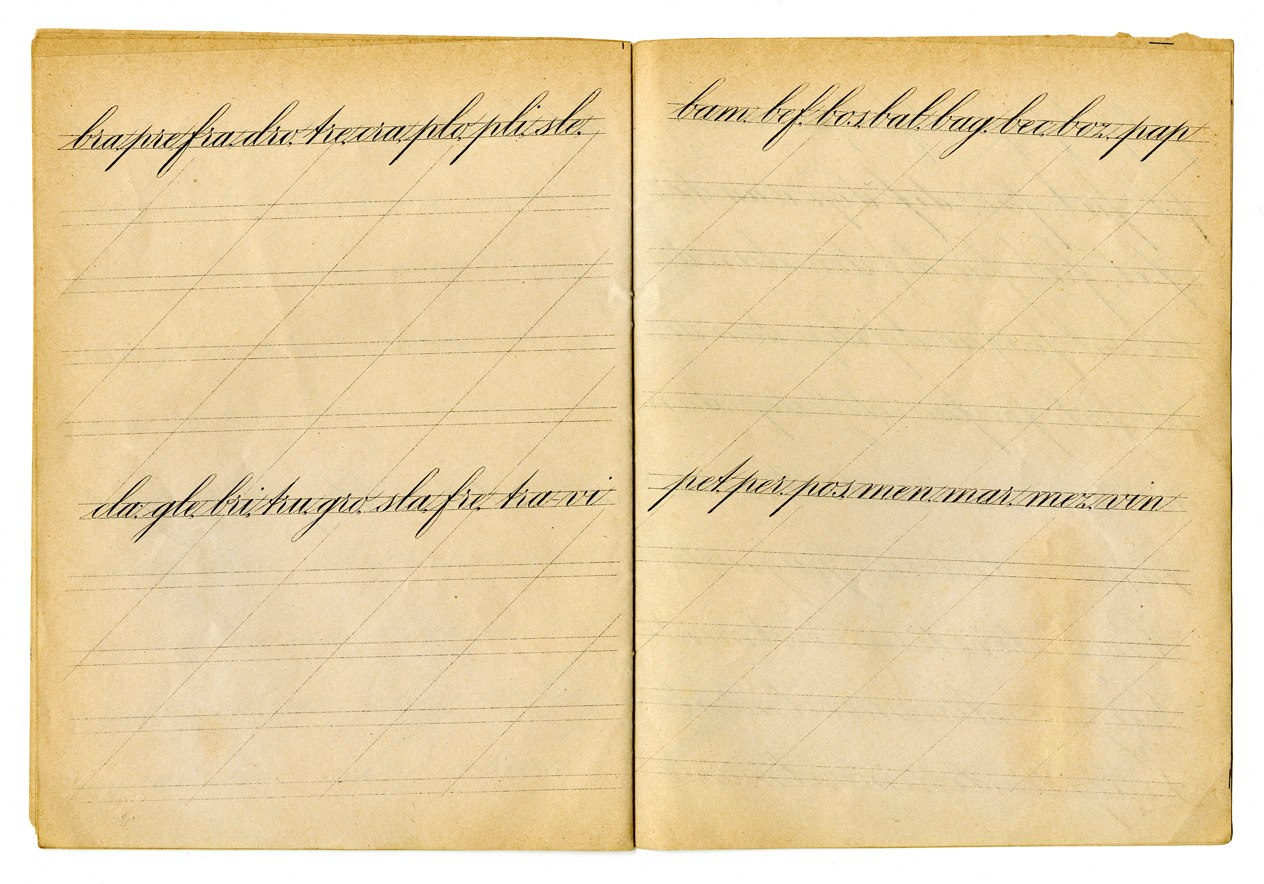 bra. pre. fra. dro. tre. cra. plo. pli. sle.
cla. gle. bri. tru. gro. sla. fre. tra-vi
bam. bef. bos. bal. bag. bec. boz. pap
pet. per. pos. men. mar. mez. vin